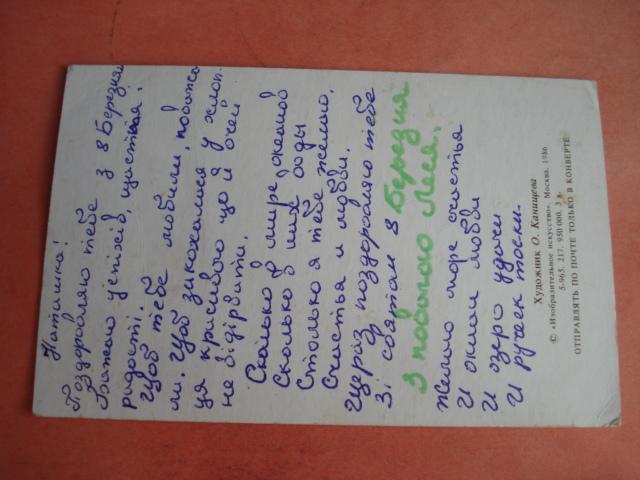 Наташка!
Поздоровляю тебе з 8 Березня
Бажаю успіхів, щастя,
радості.
Щоб тебе любили, поважа
ли. Щоб закохалися у хлоп-
ця красивого що й очей
не відірвати.
Сколько в мире океанов
Сколько в них воды
Столько я тебе желаю.
Счастья и любви.
Щераз поздоровляю тебе
Зі святом 8 Березня
З повагою Леся.
Желаю море счастья
И океан любви
И озеро удачи
И ручеек тоски.
Художник О. Канищева
© «Изобразительное искусство». Москва. 1986
5-965. 217. 950 000. 3 к.
ОТПРАВЛЯТЬ ПО ПОЧТЕ ТОЛЬКО В КОНВЕРТЕ